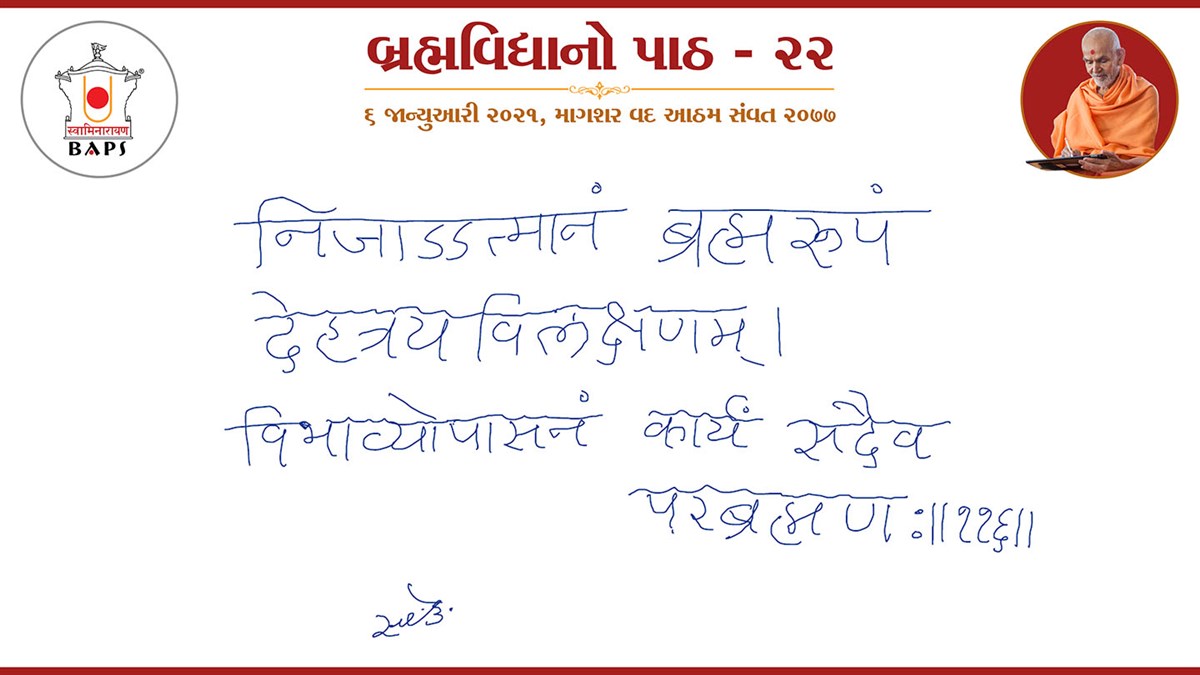 બ્રહ્મવિદ્યાનો પાઠ - ૨૨
૬ જાન્યુઆરી ૨૦૨૧, માગશર વદ આઠમ સંવત ૨૦૭૭
स्वामिनारायण
BAPS
®
निजाऽऽत्मानं ब्रह्मरूपं
देहत्रयविलक्षणम्।
विभाव्योपासनं कार्यं सदैव
परब्रह्मणः॥११६॥